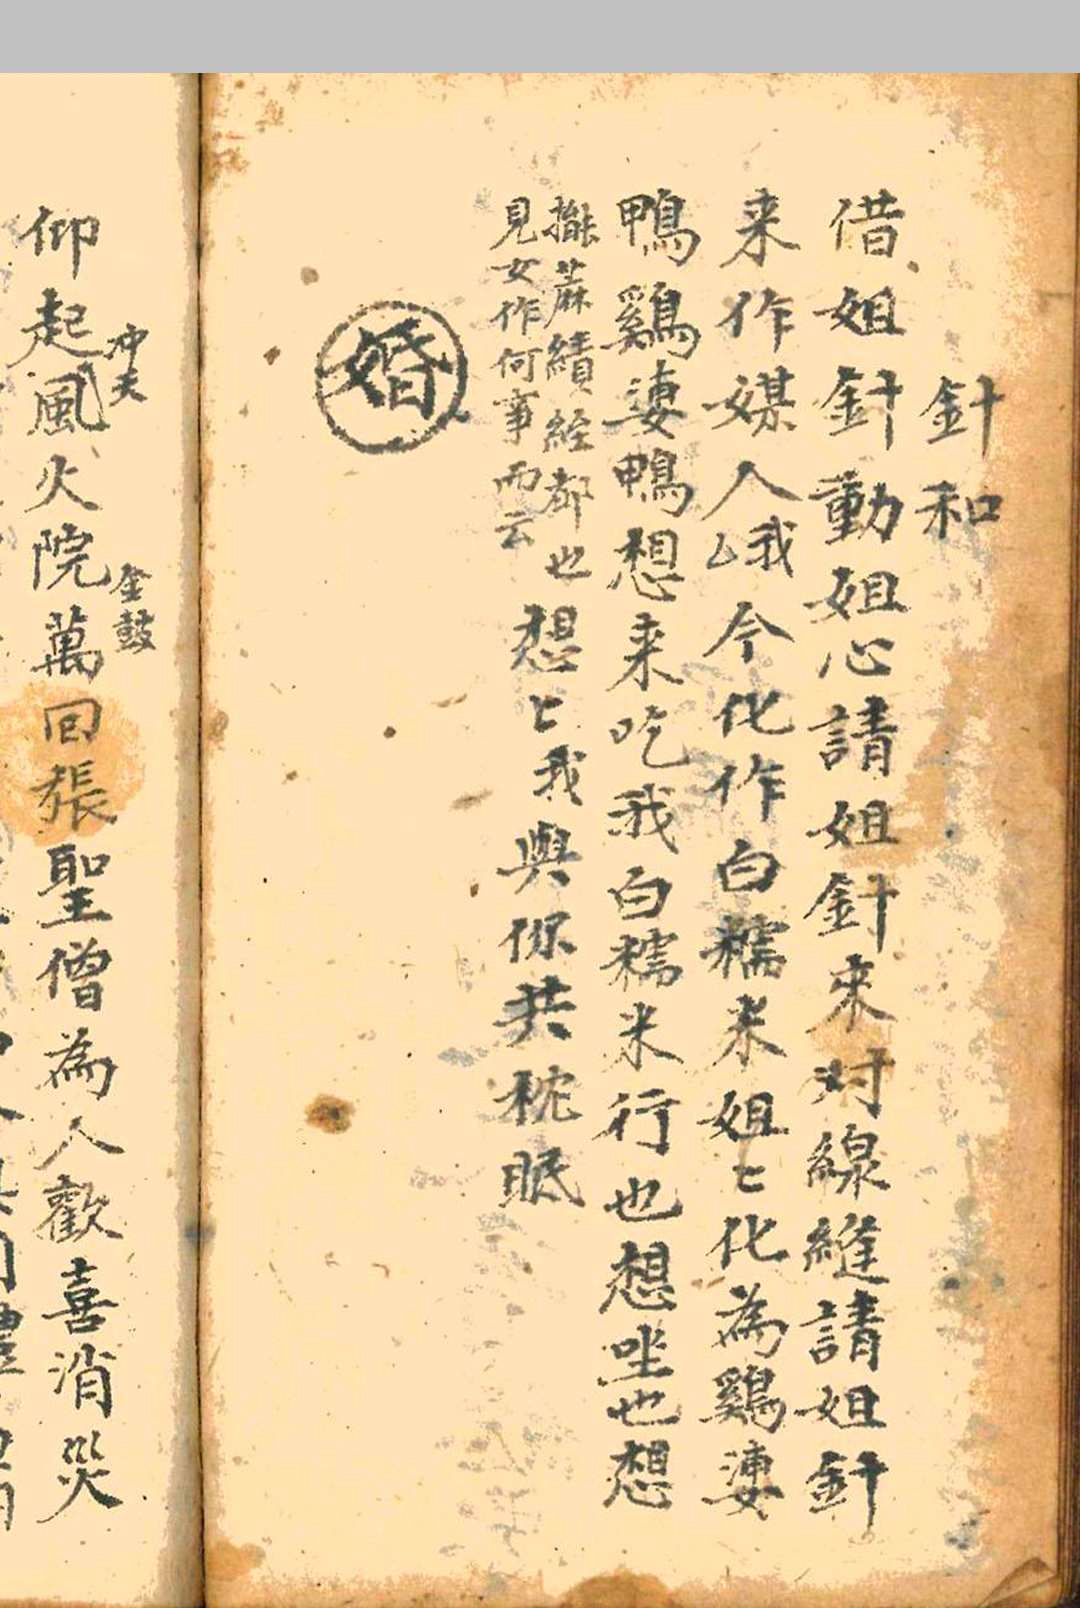 針和
借姐針動姐心請姐針來对線縫請姐針
来作媒人我今化作白糯米姐〻化為鷄婆
鴨鷄婆鴨想来吃我白糯米行也想坐也想
蔴績經都也
見女作何事而云
想〻我與你共枕眠
婚
冲天
金鼓
仰起風火院萬回張聖僧為人歡喜消災